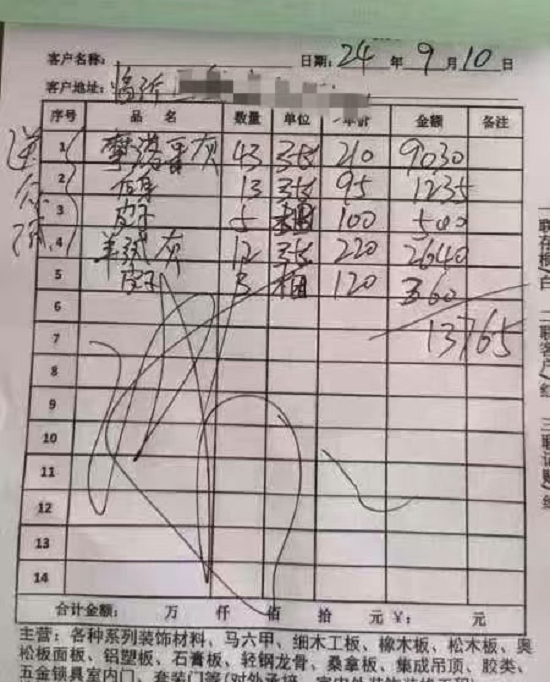 客户名称: 日期: 24 年 9 月 10 日
客户地址: 临沂
序号 品 名 数量 单位 单价 金额 备注
1 摩洛哥灰 43 张 210 9030
2 13 张 95 1235
3 5 相 100 500
4 灰 12 张 220 2640
5 3 相 120 360
6
7 13765
8
9
10
11
12
13
14
合计金额: 万 仟 佰 拾 元 ¥: 元
主营:各种系列装饰材料、马六甲、细木工板、橡木板、松木板、奥
松板面板、铝塑板、石膏板、轻钢龙骨、桑拿板、集成吊顶、胶类、
五金锁具室内门、套装门等(对外承接
一联存根/白 二联客户/红 三联记账/